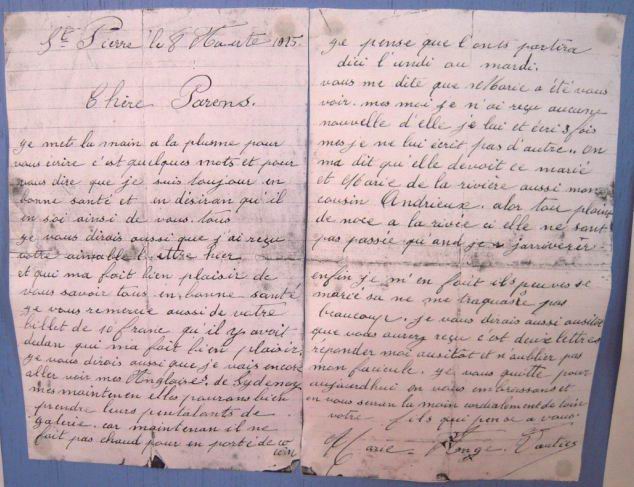 St Pierre le 8 Aoute 1915
Chère Parens.
je met la main a la plusme pour
vous écrire c'est quelques mots et pour
vous dire que je suis toujour en
bonne santé et en désiran qu'il
en soi ainsi de vous tous
je vous dirais aussi que j'ai reçu
votre aimable lettre hier
et qui ma fait bien plaisir de
vous savoir tous en bonne santé
je vous remercie aussi de votre
billet de 10 franc qu'il y avoit
dedan qui ma fait bien plaisir.
je vous dirais aussi que je vais encore
aller voir mes Anglaise. de Sydenay
mes maintenen elles pourons bien
prendre leurs pentalants de
galerie. car maintenan il ne
fait pas chaud pour en porté de
je pense que l'on partira
dici l'undi ou mardi.
vous me dite que Marie a été vous
voir. mes moi je n'ai reçu aucune
nouvelle d'elle je lui et écri 3 fois
mes je ne lui écrit pas d'autre. on
ma dit qu'elle devoit ce marié
et Marie de la rivière aussi mon
cousin Andrieux. alor tou plein
de noce a la rivée ci elle ne sont
pas passée quand je j'arrivérèr
enfin je m'en fout ils peuves se
marié sa ne me traquasse pas
beaucoup. je vous dirais aussi ausitôt
que vous aurez reçu c'est deux lettres
réponder moi ausitôt et n'oublier pas
mon facicule. je vous quitte pour
aujourdhui en vous embrassans et
en vous serran la main cordialement de loin
votre fils qui pense a vous.